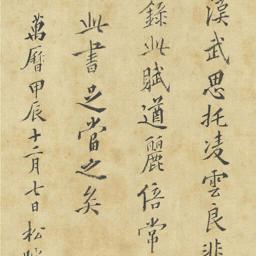 漢武思托凌雲良非
錄此賦遒麗倍常
此書足當之矣
萬曆甲辰十二月七日松